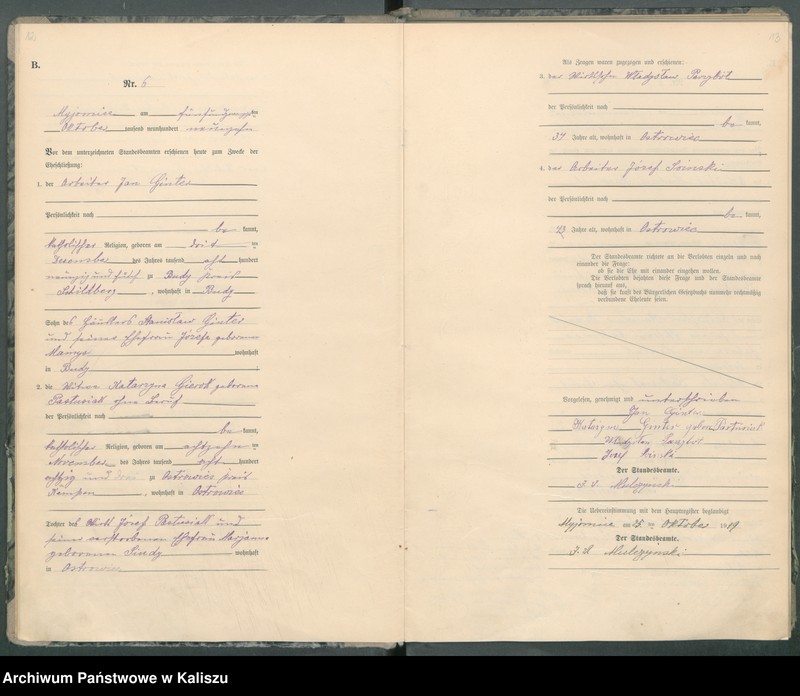 B.
Nr. 6
Myjomice am fünfundzwanzigsten
Oktober tausend neunhundert neunzehn
Vor dem unterzeichneten Standesbeamten erschienen heute zum Zwecke der
Eheschließung:
1. der Arbeiter Jan Ginter
Persönlichkeit nach
be kannt,
katholischer Religion, geboren am
Dezember des Jahres tausend acht hundert
zu Budy Kreis
Schildberg, wohnhaft in Budy
Sohn des Häuslers Stanislaw Ginter
und seiner Ehefrau Józefa geborenen
wohnhaft
in Budy
2. die Witwe Katarzyna geborene
Pastusiak ohne Beruf
der Persönlichkeit nach
be kannt,
katholischer Religion, geboren am achtzehnten
November des Jahres tausend acht hundert
achtzig und drei zu Ostrowiec Kreis
Kempen, wohnhaft in Ostrowiec
Tochter des Wirth Józef Pastusiak und
seiner verstorbenen Ehefrau Marjanna
geborenen wohnhaft
in Ostrowiec
Als Zeugen waren zugezogen und erschienen:
3. der Władysław
der Persönlichkeit nach
be kannt,
Jahre alt, wohnhaft in Ostrowiec
4. der Arbeiter Józef
der Persönlichkeit nach
be kannt,
Jahre alt, wohnhaft in Ostrowiec
Der Standesbeamte richtete an die Verlobten einzeln und nach
einander die Frage:
ob sie die Ehe mit einander eingehen wollen.
Die Verlobten bejahten diese Frage und der Standesbeamte
sprach hierauf aus,
daß sie kraft des Bürgerlichen Gesetzbuchs nunmehr rechtmäßig
verbundene Eheleute seien.
Vorgelesen, genehmigt und unterschrieben
Jan Ginter
Katarzyna Ginter geboren Pastusiak
Józef
Der Standesbeamte.
J. V. Mielzynski
Die Uebereinstimmung mit dem Hauptregister beglaubigt
Myjomice am 25 ten Oktober 1919
Der Standesbeamte.
J. V. Mielzynski
Archiwum Państwowe w Kaliszu